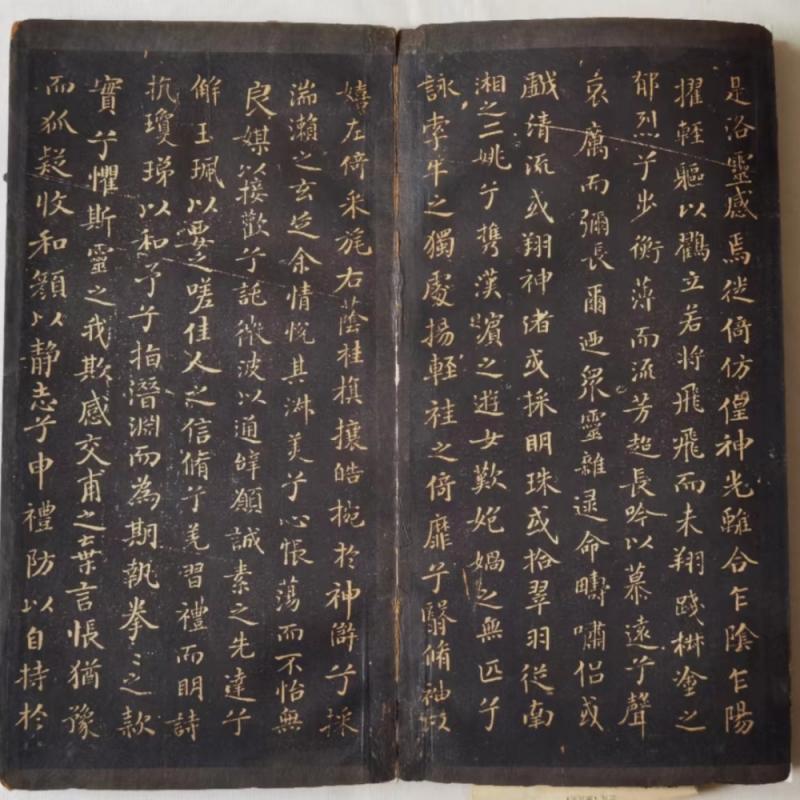 是洛靈感焉徙倚仿偟神光離合乍陰乍陽
擢輕軀以鶴立若將飛飛而未翔踐椒塗之
郁烈兮步衡薄而流芳超長吟以慕遠兮聲
哀厲而彌長爾迺眾靈雜遝命疇嘯侶或
戲清流或翔神渚或採明珠或拾翠羽從南
湘之二姚兮携漢濱之遊女歎匏媧之無匹兮
詠牽牛之獨處揚輕袿之倚靡兮翳脩袖以
嬉左倚采旄右蔭桂旗攘皓捥於神滸兮採
湍瀨之玄芝余情悅其淑美兮心悵蕩而不怡無
良媒以接歡兮託微波以通辭願誠素之先達兮
解玉珮以要之嗟佳人之信脩兮羌習禮而明詩
抗瓊珶以和予兮指潛淵而為期執拳〻之款
實兮懼斯靈之我欺感交甫之棄言悵猶豫
而狐疑收和顏以靜志兮申禮防以自持於